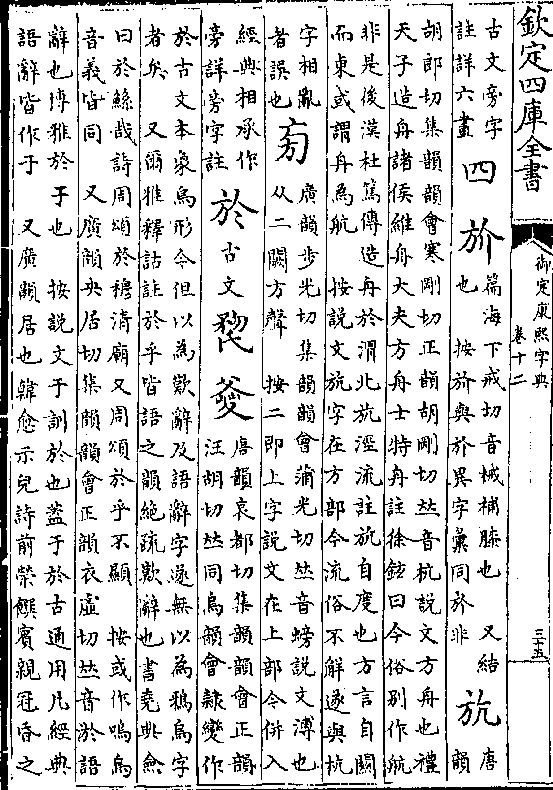 欽定四庫全書
御定康熙字典
卷十二
三十五
古文旁字
註詳六畫
四
㫅
篇海下戒切音械補膝也 又結
也 按㫅與於異字彙同於非
㫄
唐
韻
胡郎切集韻韻會寒剛切正韻胡剛切𠀤音杭說文方舟也禮
天子造舟諸侯維舟大夫方舟士特舟註徐鉉曰今俗別作航
非是後漢杜篤傳造舟於渭北斻涇流註斻自度也方言自關
而東或謂舟爲航 按說文斻字在方部今流俗不解遂與杭
字相亂
者誤也
㫄
廣韻步光切集韻韻會蒲光切𠀤音螃說文溥也
从二闕方聲 按二卽上字說文在上部今併入
經典相承作
旁詳旁字註
於
古文
唐韻哀都切集韻韻會正韻
汪胡切𠀤同烏韻會隷變作
於古文本象烏形今但以爲歎辭及語辭字遂無以爲鴉烏字
者矣 又爾雅釋詁註於乎皆語之韻絕疏歎辭也書堯典僉
曰於鯀哉詩周頌於穆淸廟又周頌於乎不顯 按或作嗚烏
音義皆同 又廣韻央居切集韻韻會正韻衣虛切𠀤音淤語
辭也博雅於于也 按說文于訓於也蓋于於古通用凡經典
語辭皆作于 又廣韻居也韓愈示兒詩前榮饌賓親冠昏之